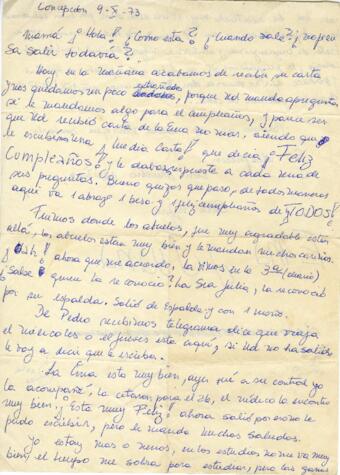 Concepción 9-X-73
Mamá ¡Hola! ¿Cómo está? ¿Cuándo sale? ¿no piensa salir todavía?
Hoy en la mañana acabamos de recibir su carta
y nos quedamos un poco extrañados, porque Ud manda a preguntar
si le mandamos algo para el cumpleaños, y parece ser
que Ud recibió carta de la Ema no mas, siendo que
le escribimos una ¡Media Carta! que decía ¡Feliz
Cumpleaños! y le dabas respuesta a cada una de
sus preguntas. Bueno quizás que pasó, de todas maneras
aquí va 1 abrazo 1 beso y 1 feliz cumpleaños de ¡TODOS!
Fuimos donde los abuelos, fue muy agradable estar
allá, los abuelos estan muy bien y le mandan muchos cariños.
ahora que me acuerdo, la vimos en la 3era (diario)
¿Sabe quien la reconoció? La Sra Julia, la reconoció
por su espalda. Salió de Espalda y con 1 moño.
De Pedro recibimos telegrama dice que viaja
el miercoles o el jueves esta aquí, si Ud no ha salido
le voy a decir que le escriba.
La Ema esta muy bien, ayer fué a su control yo
la acompañé, la citaron para el 26, el médico la encontró
muy bien ¡Esta muy Feliz! ahora salió por eso no le
pudo escribir, pero le manda muchos saludos.
Yo estoy mas o menos, en los estudios no me va muy
bien, el tiempo me sobra para estudiar, pero las ganas